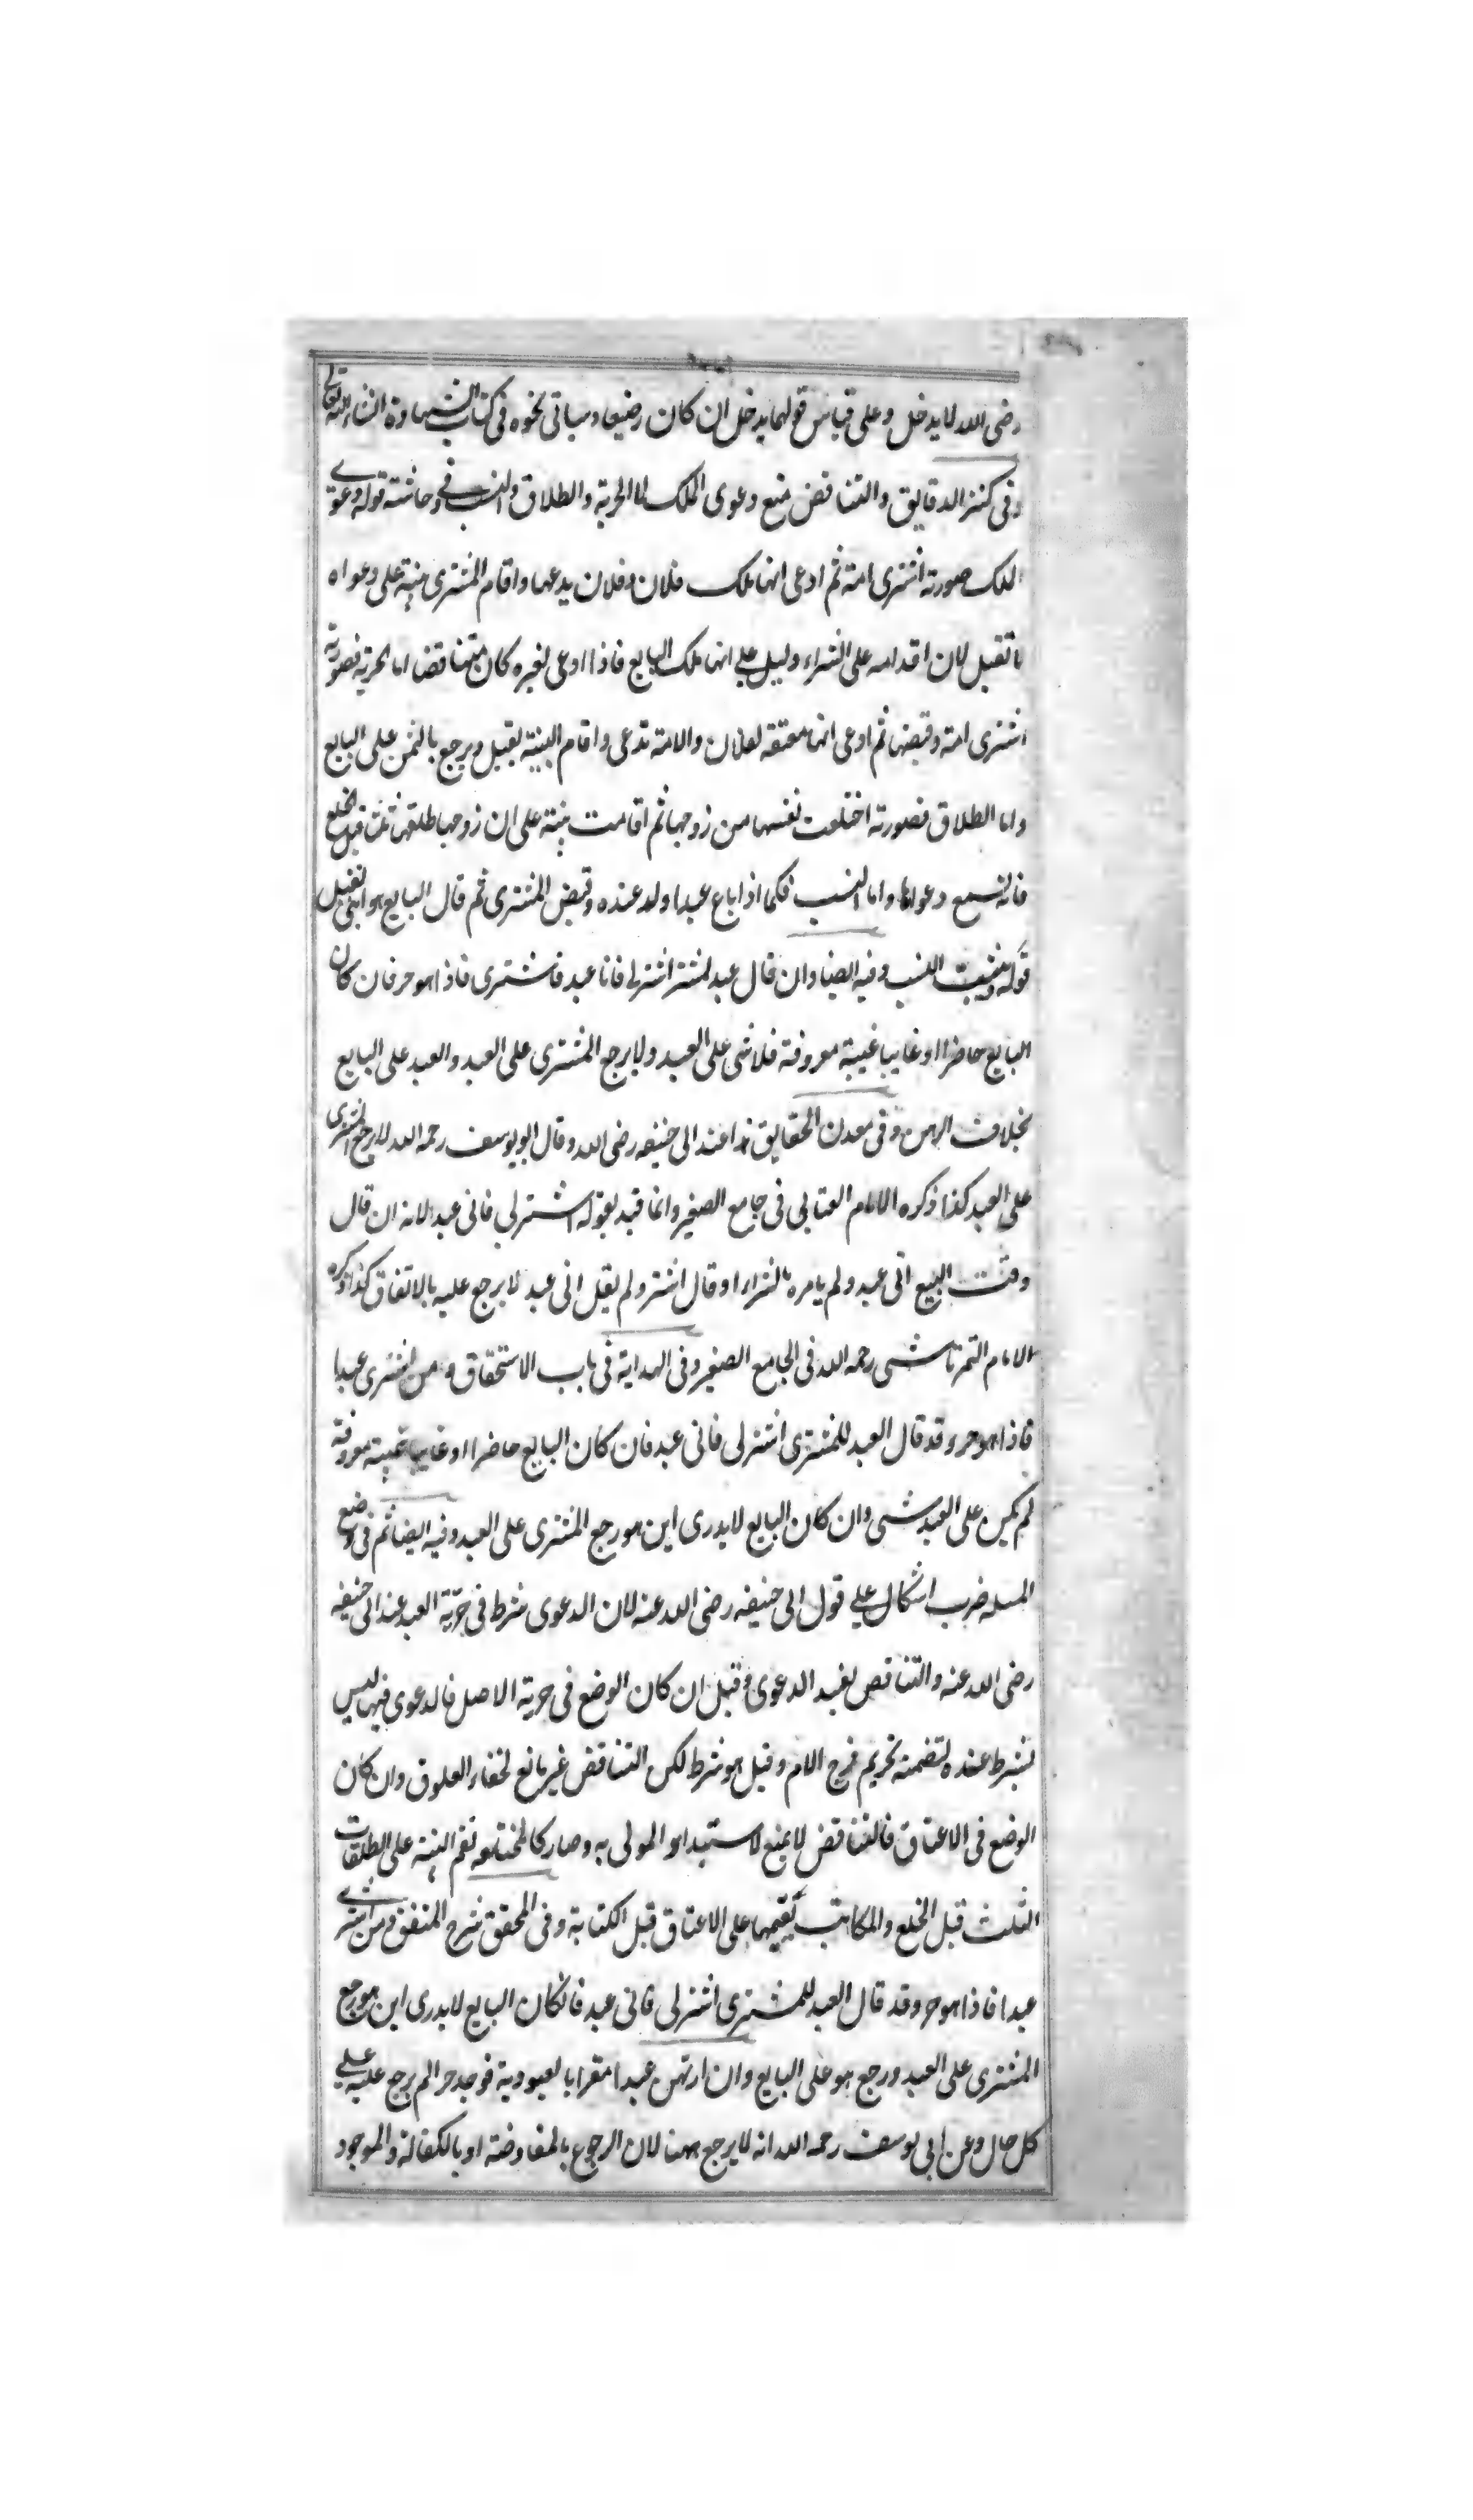 رضى الله لا يدخل وعلى قياس قولهما يدخل ان كان رضيعا وسياتى نحوه فى كتاب الشهادة انشاء الله تعالى
وفى كنز الدقايق والتناقض منع دعوى الملك لا الحرية والطلاق والنسب فى حاشيته قوله دعوى
الملك صورته اشترى امة ثم ادعى انها ملك فلان وفلان يدعيها واقام المشترى بينة على دعواه
لا تقبل لان اقدامه على الشراء دليل على انها ملك البايع فاذا ادعى لغيره كان متناقضا اما الحرية فصورته
اشترى امة وقبضها ثم ادعى انها معتقة لفلان والامة تدعى واقام البينة يقبل ويرجع بالثمن على البايع
واما الطلاق فصورته اختلعت نفسها من زوجها ثم اقامت بينة على ان زوجها طلقها ثلثا قبل الخلع
فانه تسمع دعواها واما النسب فكما اذا باع عبدا ولد عنده وقبض المشترى ثم قال البايع هو ابنى تقبل
قوله ويثبت النسب وفيه ايضا وان قال عبد لمشتر اشترلى فانا عبد فاشترى فاذا هو حر فان كان
البايع حاضرا او غايبا غيبة معروفة فلا شى على العبد ولا يرجع المشترى على العبد والعبد على البايع
بخلاف الرهن وفى معدن الحقايق هذا عند ابى حنيفه رضى الله وقال ابو يوسف رحمه الله لا يرجع المشترى
على العبد كذا ذكره الامام العتابى فى جامع الصغير وانما قيد بقوله اشترلى فانى عبد لانه ان قال
وقت البيع انى عبد ولم يامره بالشراء او قال اشتر ولم يقل انى عبد لا يرجع عليه بالاتفاق كذا ذكره
الامام التمرتاشى رحمه الله فى الجامع الصغير وفى الهداية فى باب الاستحقاق ومن اشترى عبدا
فاذا هو حر وقد قال العبد للمشترى اشترلى فانى عبد فان كان البايع حاضرا او غايبا غيبة معروفة
لم يكن على العبد شى وان كان البايع لا يدرى اين هو رجع المشترى على العبد وفيه ايضا ثم فى وضع
المسله ضرب اشكال على قول ابى حنيفه رضى الله عنه لان الدعوى شرط فى حرية العبد عند ابى حنيفه
رضى الله عنه والتناقض يفسد الدعوى وقيل ان كان الوضع فى حرية الاصل فالدعوى فيها ليس
بشرط عنده لتضمنه تحريم فرج الام وقيل هو شرط لكن التناقض غير مانع لخفاء العلوق وان كان
الوضع فى الاعتاق فالتناقض لا يمنع لاستبداد المولى به وصار كالمختلعه تقم البينة على الطلقات
الثلث قبل الخلع والمكاتب يقيمها على الاعتاق قبل الكتابة وفى المحقق شرح المتفق ومن اشترى
عبدا فاذا هو حر وقد قال العبد للمشترى اشترلى فانى عبد فانكان البايع لا يدرى اين هو رجع
المشترى على العبد ورجع هو على البايع وان ارتهن عبدا مقرا بالعبودية فوجد حرا لم يرجع عليه على
كل حال وعن ابى يوسف رحمه الله انه لا يرجع ههنا لان الرجوع بالمفاوضة او بالكفالة والموجود